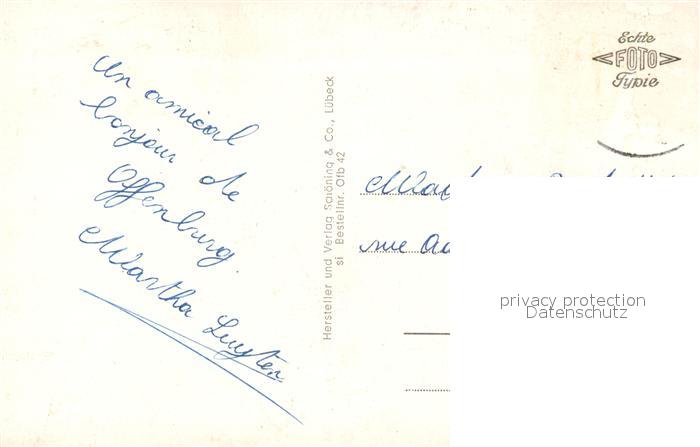 Un amical
bonjour de
Offenburg.
Martha
Hersteller und Verlag Schöning & Co., Lübeck
si Bestellnr. Ofb 42
Echte
FOTO
Typie
rue
privacy protection
Datenschutz